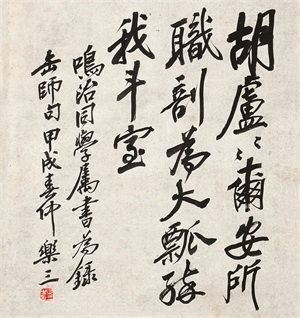 胡盧〻〻爾安所
職剖為大瓢醉
我斗室
鳴治同學屬書為録
缶師句甲戌春仲樂三